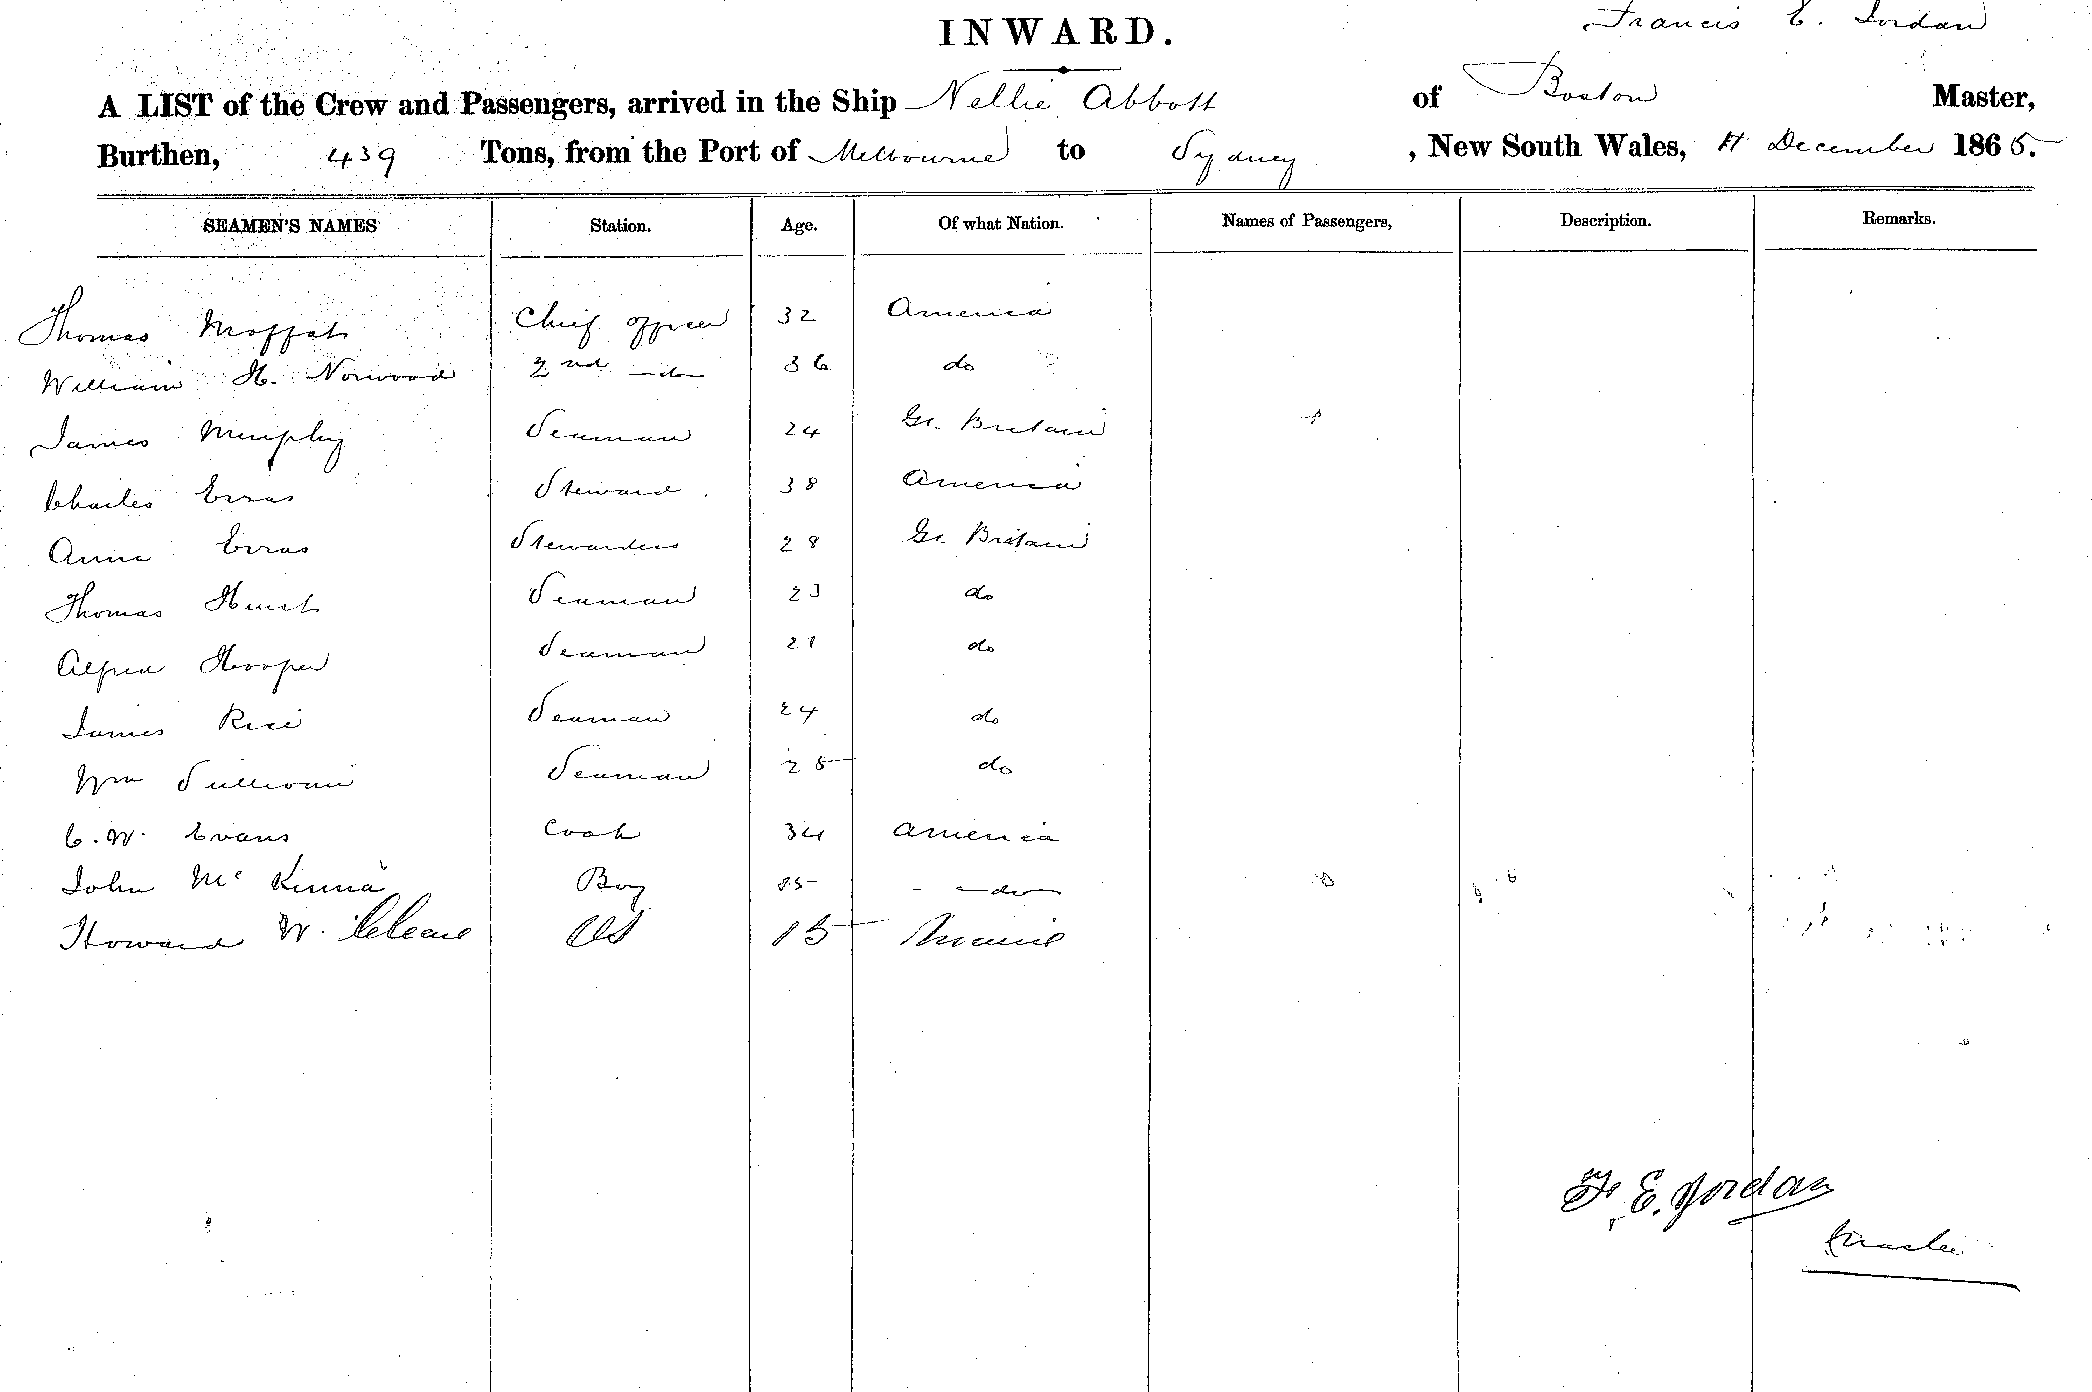 INWARD.
Francis E. Jordan
A LIST of the Crew and Passengers, arrived in the Ship Nellie Abbott of Boston Master,
Burthen, 439 Tons, from the Port of Melbourne to Sydney , New South Wales, December 1865.
SEAMEN'S NAMES Station. Age. Of what Nation. Names of Passengers, Description. Remarks.
Thomas Moffat Chief Officer 32 America
William H. Norwood 2nd do 36 do
James Murphy Seaman 24 Gt. Britain
Charles Steward 38 America
Anna Stewardess 28 Gt. Britain
Thomas Hurst Seaman 23 do
Alfred Hooper Seaman 21 do
James Rice Seaman 24 do
Wm Sullivan Seaman 25 do
C. W. Evans Cook 34 America
John McKenna Boy 15 do
Howard W. 15 Maine
F. E. Jordan
Master